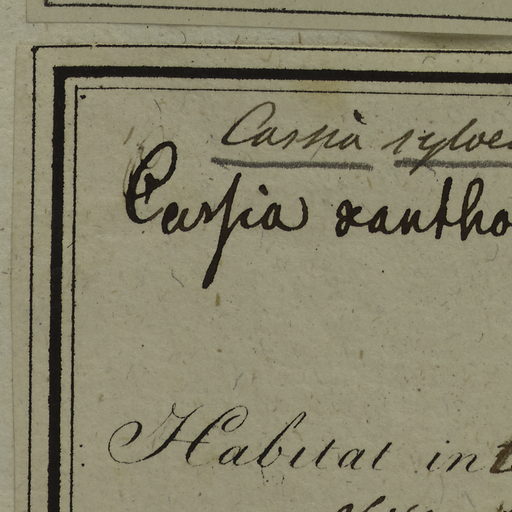 Cassia sylves
Cassia xantho
Habitat in